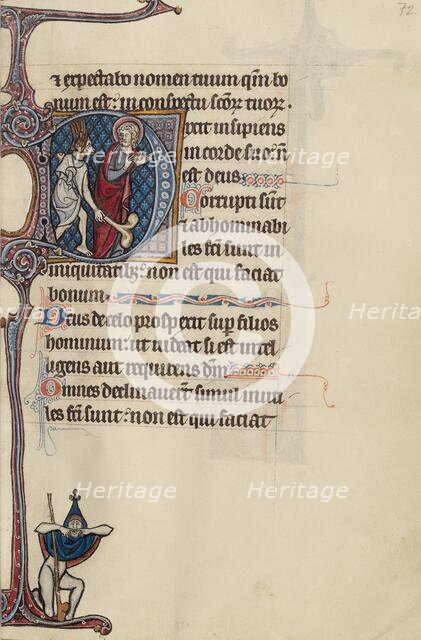 72
⁊ expectabo nomen tuum qm̄ bo
num est: in conspectu scōꝝ tuoꝝ.
Dixit insipiens
in corde suo: nō
est deus
Corrupti sūt
⁊ abhominabi
les fcī sunt in
iniquitatibꝫ: non est qui faciat
bonum.
Deus de celo prospexit sup̄ filios
hominum: ut uideat si est intel
ligens aut requirens dm̄.
Omnes declinauerūt simul inuti
les fcī sunt: non est qui faciat
Heritage
Heritage
Heritage
Heritage
Heritage
Heritage
Heritage
Heritage